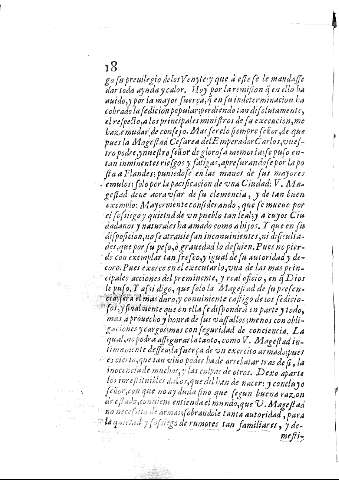 18
go su preuilegio de los Veynte, y que à este se le mandasse
dar toda ayuda y calor. Hoy por la remision q̃ en ello ha
auido, y por la mayor fuerça, q̃ en su indeterminacion ha
cobrado la sedicion popular, perdiendo tan disolutamente,
el respecto, a los principales ministros de su execucion, me
haze mudar de consejo. Mas sere lo siempre señor, de que
pues la Magestad Cesarea del Emperador Carlos, vuestro
padre, y nuestro señor de gloriosa memoria se puso en
tan inminentes riesgos y fatigas, apresurandose por la posta
a Flandes: puniendose en las manos de sus mayores
emulos: solo por la pacificacion de vna Ciudad: V. Magestad
deue acordarse de su clemencia, y de tan buen
exemplo: Mayormente considerando, que se mueue por
el sossiego y quietud de vn pueblo tan leal, y a cuyos Ciudadanos
y naturales ha amado como a hijos. Y que en su
disposicion, no se atrauiesan inconuinientes, ni dificultades,
que por su peso, ò grauedad lo desuien. Pues no pierde
con exemplar tan fresco, y igual de su autoridad y decoro.
Pues exerce en el executarlo, vna de las mas principales
acciones del preminente, y real oficio, en q̃ Dios
le puso. Y assi digo, que solo la Magestad de su presencia
sera el mas duro, y conuiniente castigo de los sediciosos,
y finalmente que con ella se dispondrà su parte y todo,
mas a prouecho y honra de sus vassallos, menos con obligaciones
y cargos, mas con seguridad de conciencia. La
qual, no podra assegurar la tanto, como V. Magestad intimamente
dessea, la fuerça de vn exercito armada, pues
es cierto, que tan viuo poder ha de arrebatar tras de si, la
inocencia de muchas, y las culpas de otras. Dexo aparte
los irrestituibles daños, que del han de nacer: y concluyo
señor, con que no ay duda sino que segun buena razon,
de estado, conuiene entienda el mundo, que V. Magestad
no necessita de armas, sobrandole tanta autoridad, para
la quietud y sossiego de rumores tan familiares, y domestic